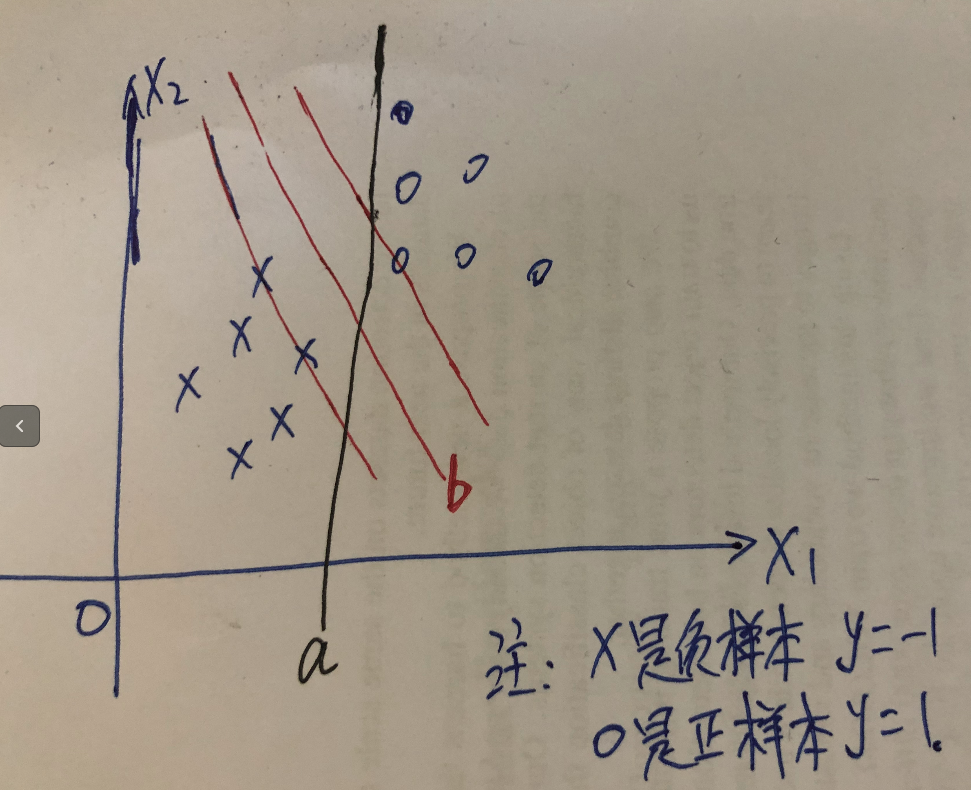 X2
b
X1
O
a
注: X是负样本 y=-1
O是正样本 y=1.